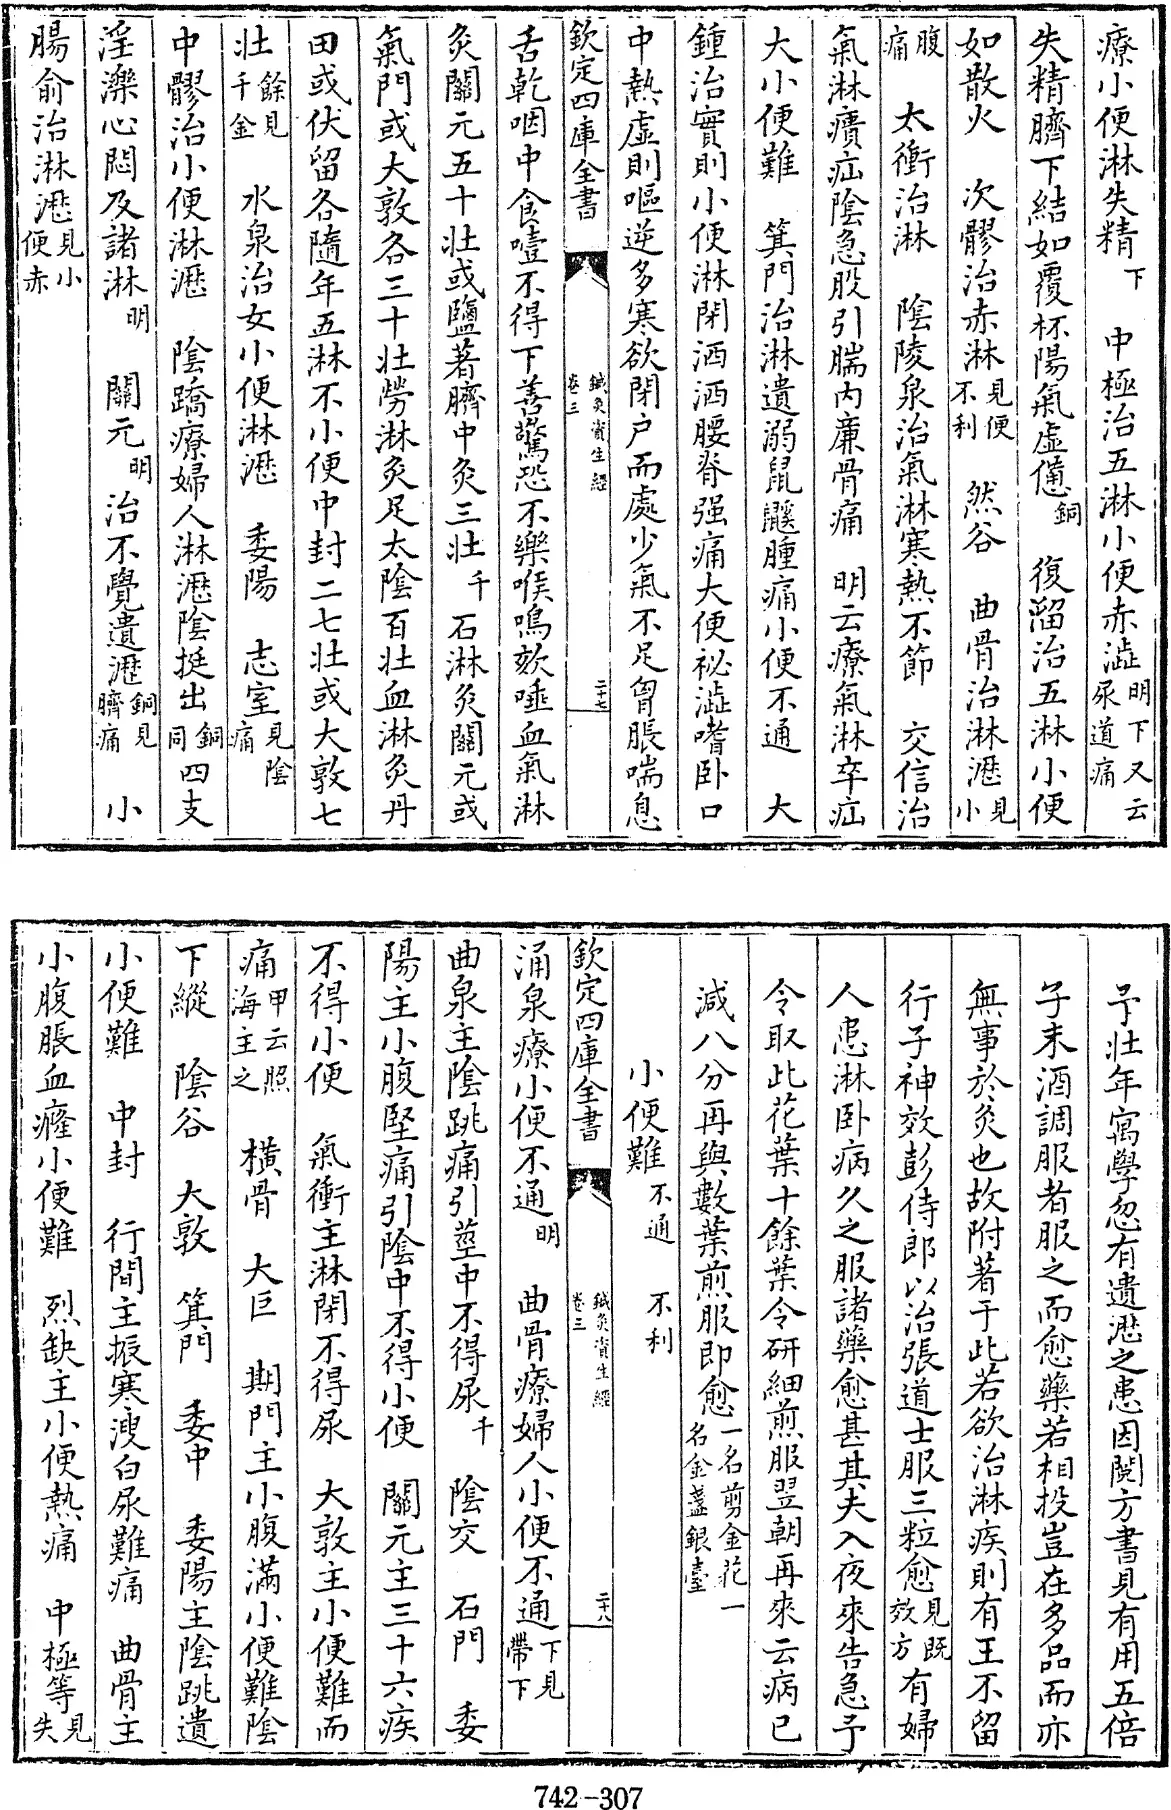 療小便淋失精下　中極治五淋小便赤澁明下又云尿道痛
失精臍下結如覆杯陽氣虛憊銅　復溜治五淋小便
如散火　次髎治赤淋見便不利　然谷　曲骨治淋瀝見小
腹痛　太衝治淋　陰陵泉治氣淋寒熱不節　交信治
氣淋㿉疝陰急股引腨內廉骨痛　明云療氣淋卒疝
大小便難　箕門治淋遺溺鼠鼷腫痛小便不通　大
鍾治實則小便淋閉洒洒腰脊强痛大便祕澁嗜卧口
中熱虛則嘔逆多寒欲閉户而處少氣不足胷脹喘息
欽定四庫全書　鍼灸資生經卷三　二十七
舌乾咽中食噎不得下善驚恐不樂喉鳴欬唾血氣淋
灸關元五十壯或鹽著臍中灸三壯千　石淋灸關元或
氣門或大敦各三十壯勞淋灸足太陰百壯血淋灸丹
田或伏留各隨年五淋不小便中封二七壯或大敦七
壯餘見千金　水泉治女小便淋瀝　委陽　志室見陰痛
中髎治小便淋瀝　陰蹻療婦人淋瀝陰挺出銅同四支
淫濼心悶及諸淋明　關元明治不覺遺瀝銅見臍痛　小
腸俞治淋瀝見小便赤
予壯年寓學忽有遺瀝之患因閱方書見有用五倍
子末酒調服者服之而愈藥若相投豈在多品而亦
無事於灸也故附著于此若欲治淋疾則有王不留
行子神效彭侍郎以治張道士服三粒愈見既效方有婦
人患淋卧病久之服諸藥愈甚其夫入夜來告急予
令取此花葉十餘葉令研細煎服翌朝再來云病已
減八分再與數葉煎服即愈一名剪金花一名金盞銀臺
小便難不通　不利
欽定四庫全書　鍼灸資生經卷三　二十八
涌泉療小便不通明　曲骨療婦人小便不通下見帶下
曲泉主陰跳痛引莖中不得尿千　陰交　石門　委
陽主小腹堅痛引陰中不得小便　關元主三十六疾
不得小便　氣衝主淋閉不得尿　大敦主小便難而
痛甲云照海主之　橫骨　大巨　期門主小腹滿小便難陰
下縱　陰谷　大敦　箕門　委中　委陽主陰跳遺
小便難　中封　行間主振寒溲白尿難痛　曲骨主
小腹脹血癃小便難　烈缺主小便熱痛　中極等見失
742-307